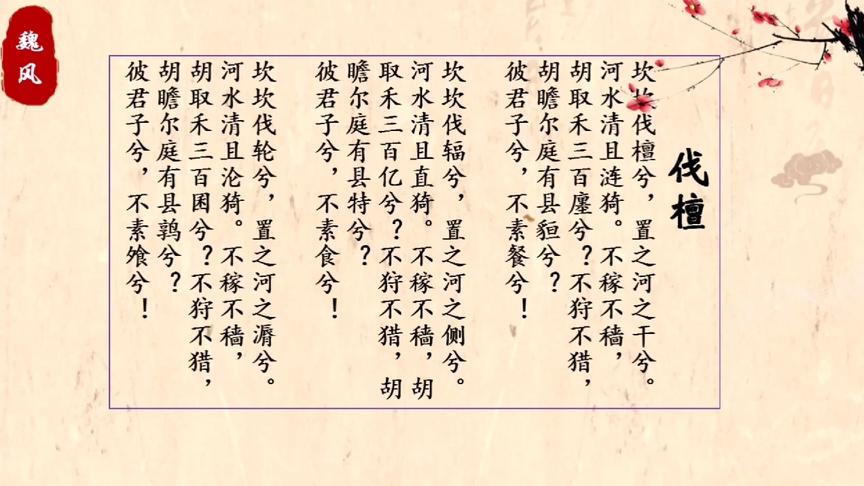 魏风
伐檀
坎坎伐檀兮，置之河之干兮。
河水清且涟猗。不稼不穑，
胡取禾三百廛兮？不狩不猎，
胡瞻尔庭有县貆兮？
彼君子兮，不素餐兮！
坎坎伐辐兮，置之河之侧兮。
河水清且直猗。不稼不穑，胡
取禾三百亿兮？不狩不猎，胡
瞻尔庭有县特兮？
彼君子兮，不素食兮！
坎坎伐轮兮，置之河之漘兮。
河水清且沦猗。不稼不穑，
胡取禾三百囷兮？不狩不猎，
胡瞻尔庭有县鹑兮？
彼君子兮，不素飱兮！